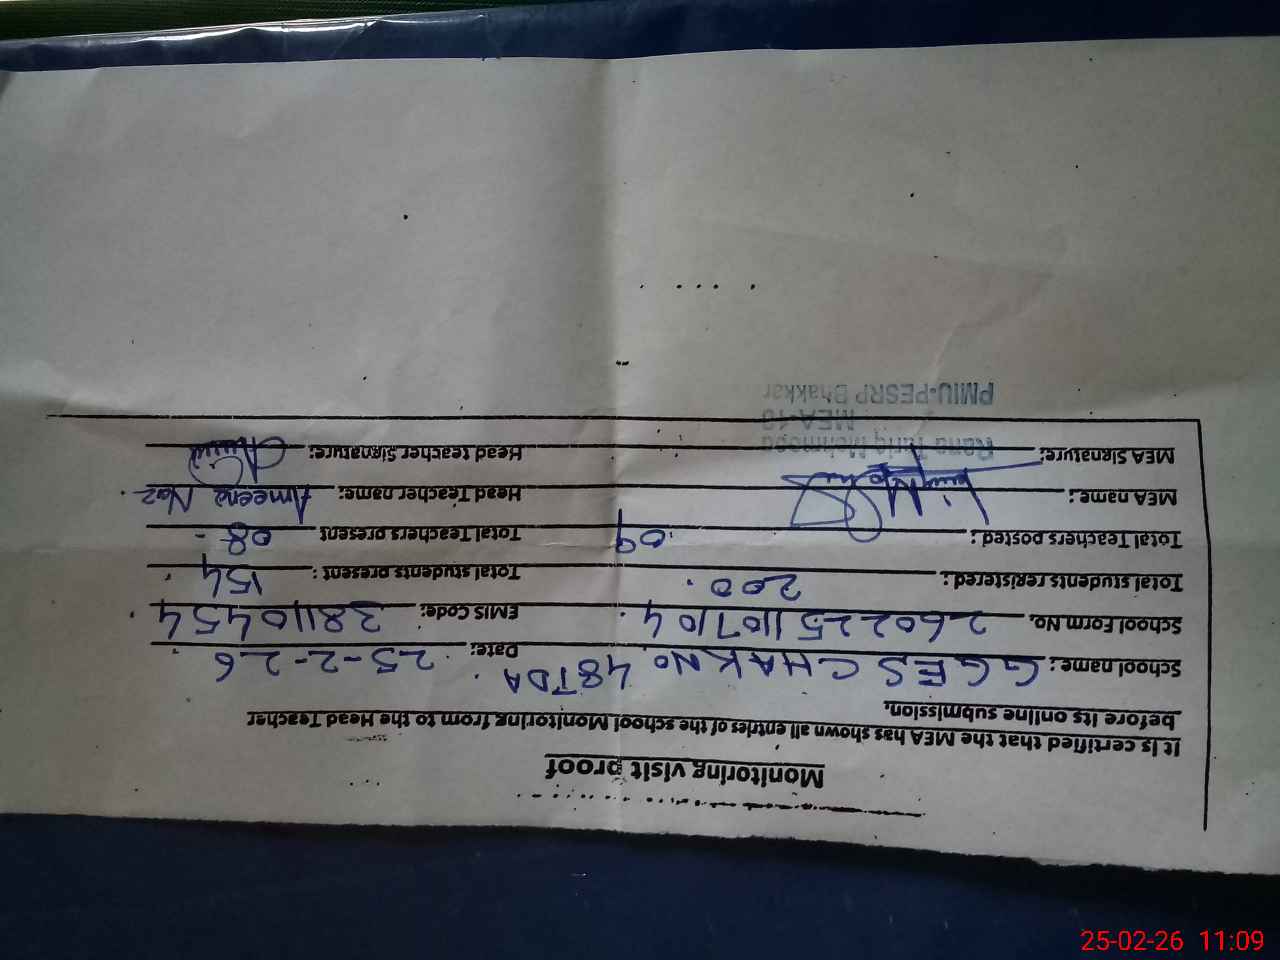 Monitoring visit proof
It is certified that the MEA has shown all entries of the school Monitoring from to the Head Teacher
before its online submission.
School name: GGES CHAK No. 48 TDA Date: 25-2-26
School Form No. 2602251107104 EMIS Code: 38110454
Total students registered: 200. Total students present: 154
Total Teachers posted: 09 Total Teachers present 08
MEA name: Head Teacher name: Ameena Naz.
MEA Signature: Head teacher Signature:
Rana Tariq Mehmood
MEA-10
PMIU-PESRP Bhakkar
25-02-26 11:09